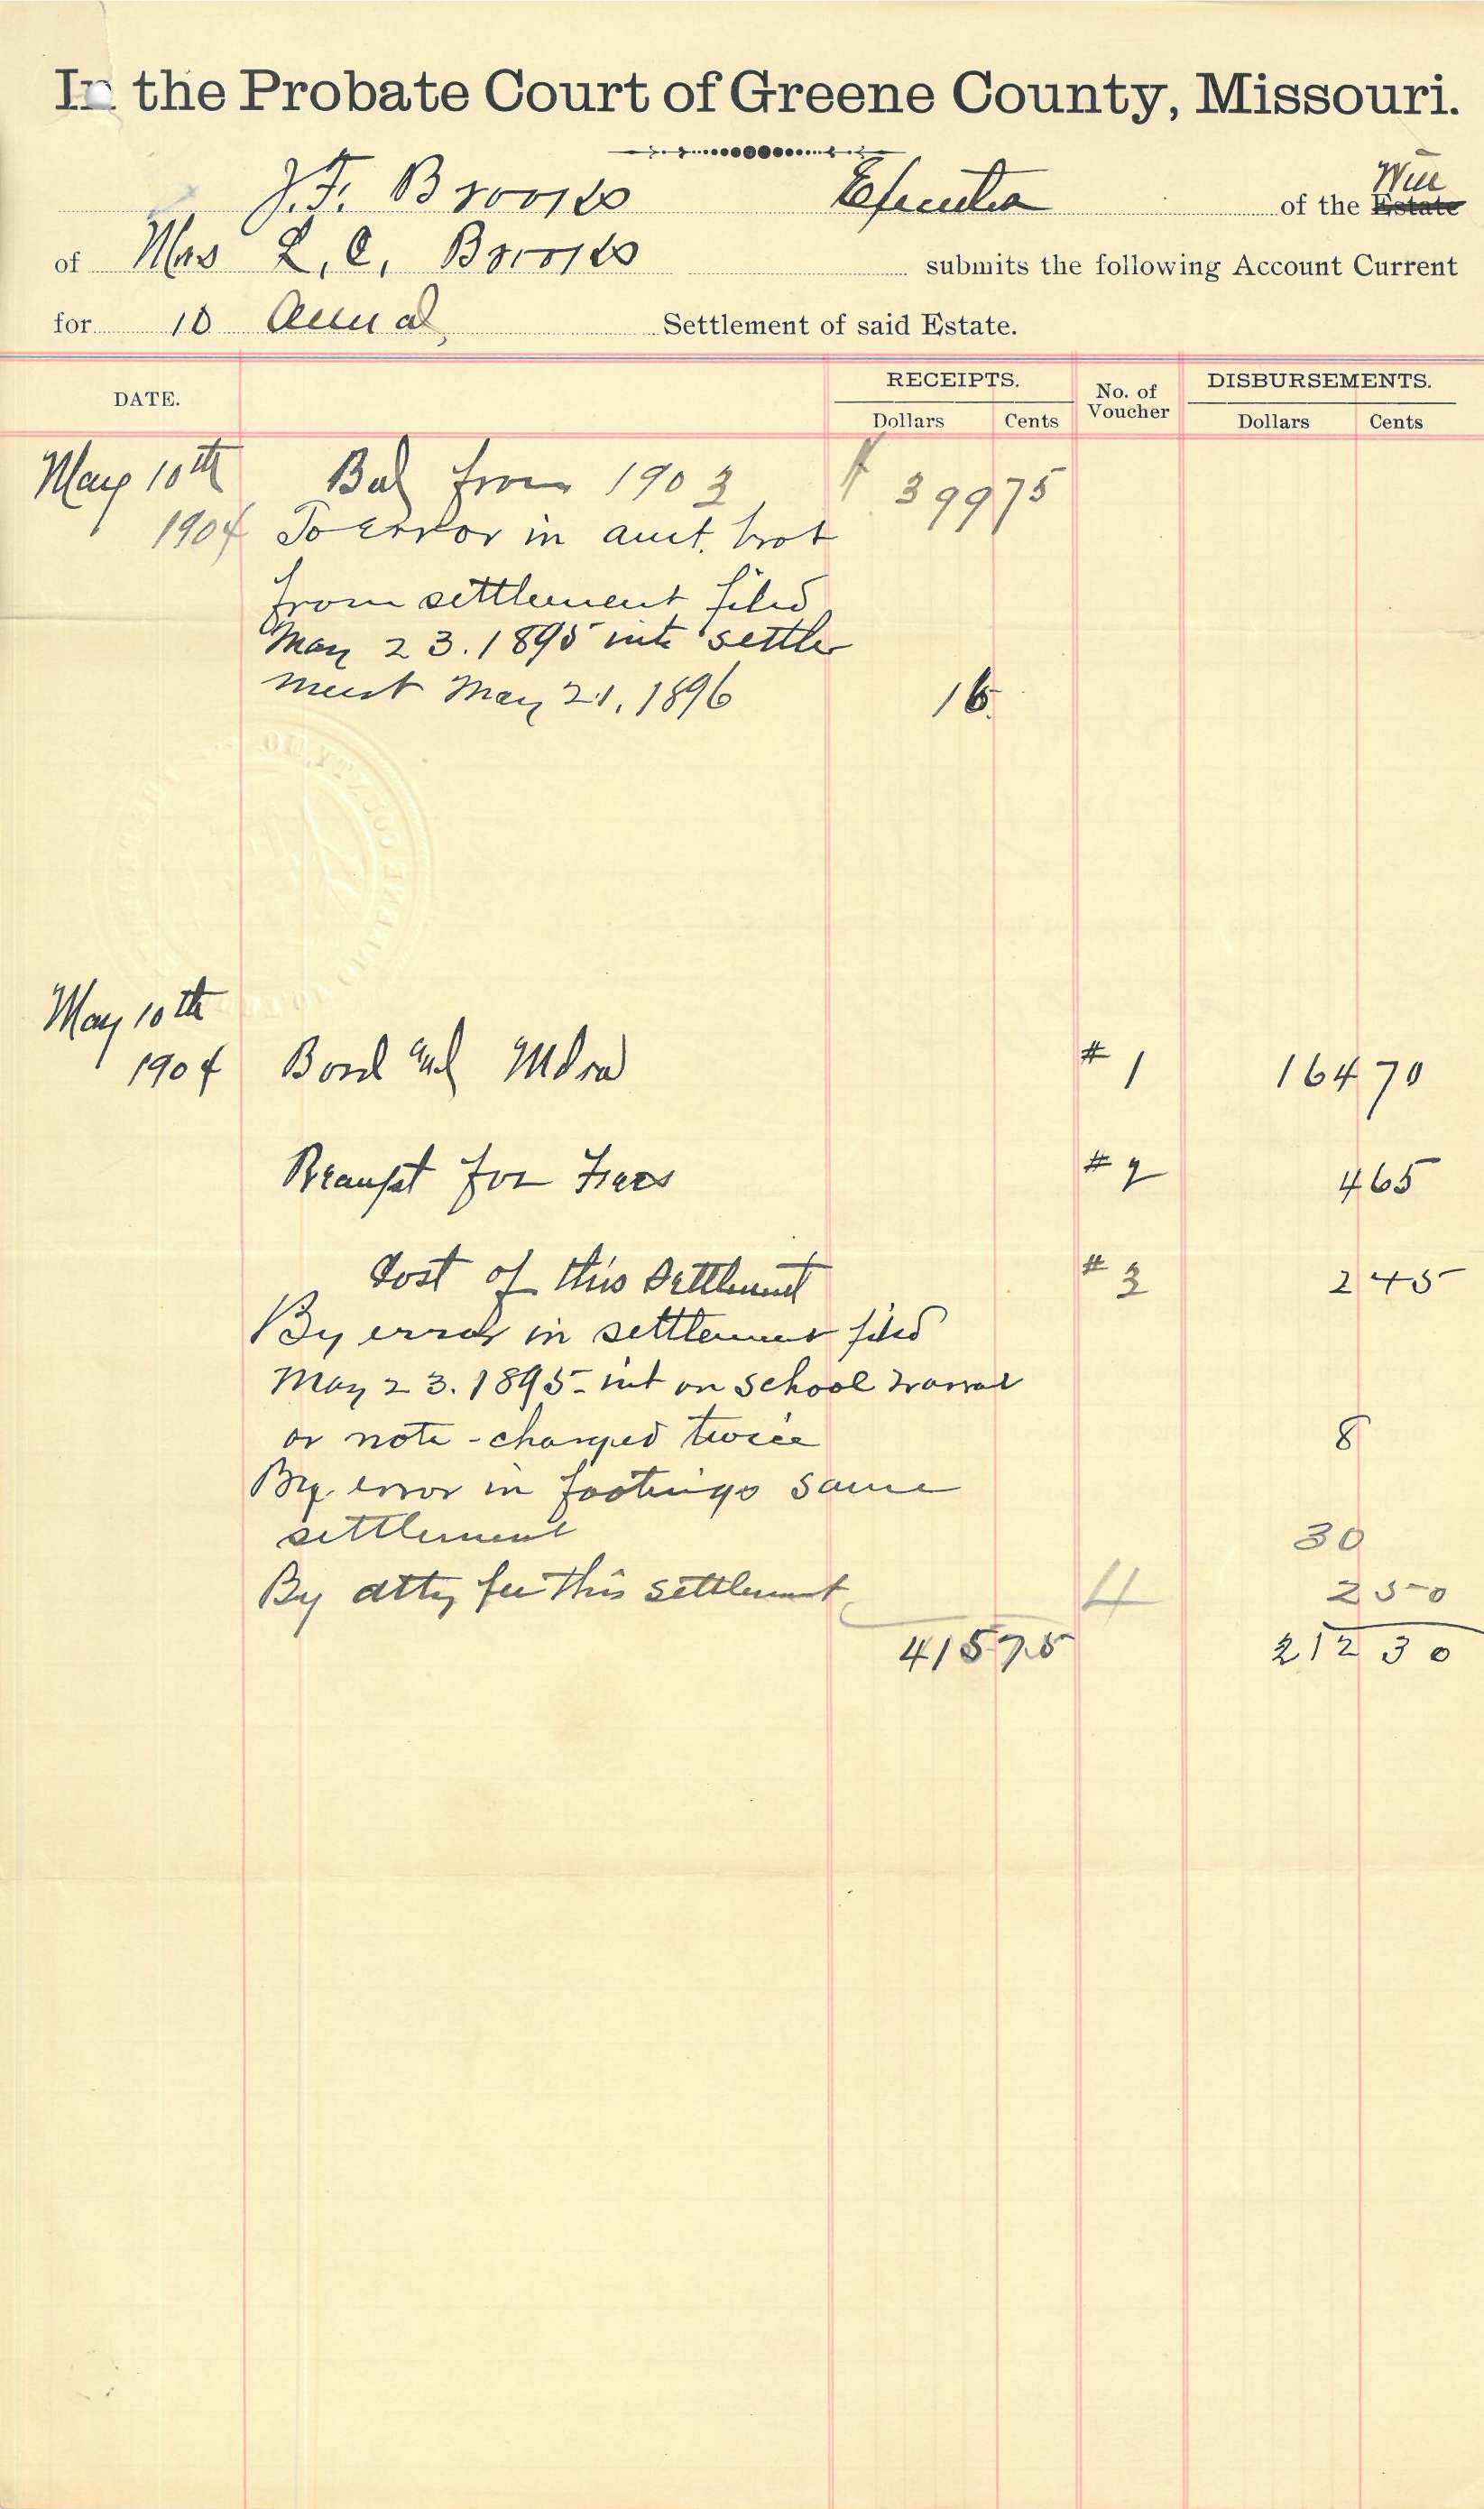 In the Probate Court of Greene County, Missouri.
J. F. Brooks Executor of the Will Estate
of Mrs L. C. Brooks submits the following Account Current
for 10 Annual Settlement of said Estate.
DATE. RECEIPTS. No. of Voucher DISBURSEMENTS.
Dollars Cents Dollars Cents
May 10th Bal from 1903 $ 399 75
1904 To Error in amt. brot
from settlement filed
May 23. 1895 into settle
ment May 21, 1896 16
May 10th
1904 Bond and # 1 164 70
for # 2 4 65
Cost of this Settlement # 3 2 45
By error in settlement filed
May 23. 1895 - int on school
or note - charged twice 8
By error in footings same
settlement 30
By atty fee this settlement 4 2 50
415 75 212 30